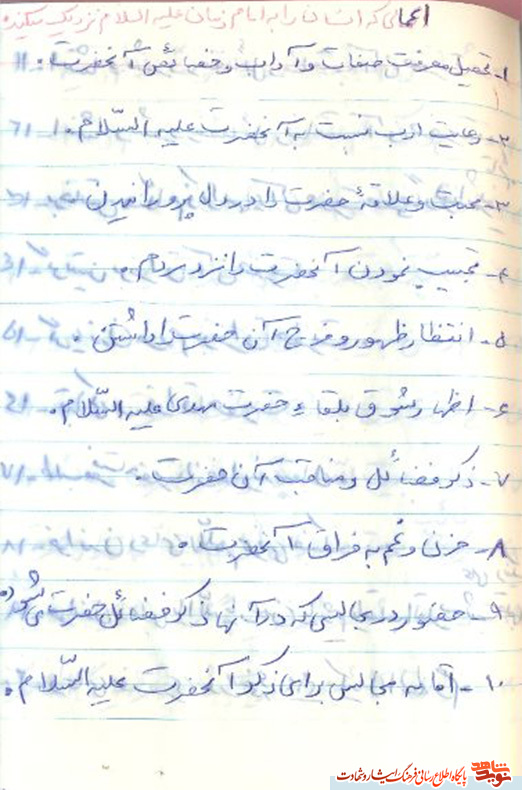 اعمالی که انسان را به امام زمان علیه السلام نزدیک میکند
۱- تحصیل معرفت صفات و آداب و خصائص آنحضرت.
۲- رعایت ادب نسبت به آنحضرت علیه السّلام.
۳- محبت و علاقهٔ حضرت را در دل پروراندن
۴- تحبیب نمودن آنحضرت را نزد مردم.
۵- انتظار ظهور و فرج آن حضرت را داشتن.
۶- اظهار شوق بلقاء حضرت مهدی علیه السّلام.
۷- ذکر فضائل و مناقب آن حضرت.
۸- حزن و غم به فراق آنحضرت.
۹- حضور در مجالسی که در آنها ذکر فضائل حضرت می‌شود.
۱۰- اقامه مجالس برای ذکر آنحضرت علیه السّلام.
نوید شاهد پایگاه اطلاع رسانی فرهنگ ایثار و شهادت